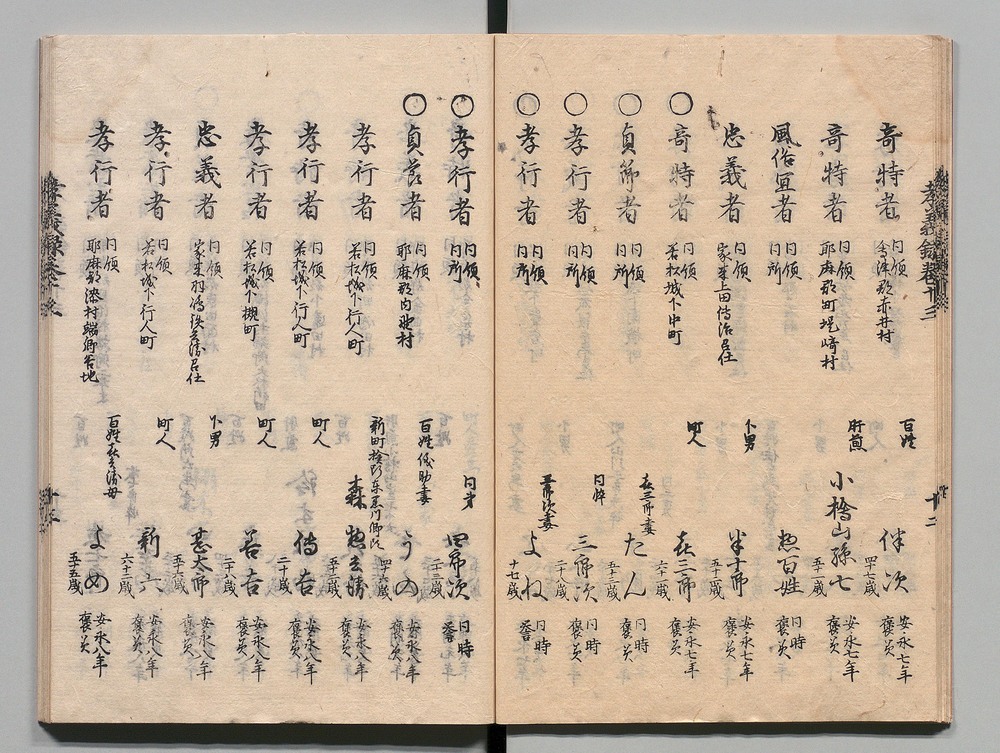 孝義録巻十三
十二
奇特者 同領 会津郡赤井村 百姓 伴次 四十七歳 安永七年 褒美
奇特者 同領 耶麻郡町堤崎村 肝煎 小檜山孫七 五十一歳 安永七年 褒美
風俗宜者 同領 同所 惣百姓 同時 褒美
忠義者 同領 家来上田伝治召仕 下男 半十郎 五十一歳 安永七年 褒美
〇奇特者 同領 若松城下中町 町人 喜三郎 六十一歳 安永七年 褒美
〇貞節者 同領 同所 喜三郎妻 たん 五十三歳 同時 褒美
〇孝行者 同領 同所 同忰 三郎次 二十八歳 同時 褒美
〇孝行者 同領 同所 三郎次妻 よね 十七歳 同時 誉
〇孝行者 同領 同所 同弟 四郎次 二十三歳 同時 誉
〇貞節者 同領 耶麻郡 村 百姓儀助妻 うの 四十六歳 安永八年 褒美
孝行者 同領 若松城下行人町 森 惣兵衛 安永八年 褒美
孝行者 同領 若松城下行人町 町人 伝吉 二十歳 安永八年 褒美
孝行者 同領 若松城下 町 町人 善吉 二十八歳 安永八年 褒美
忠義者 同領 家来 召仕 下男 甚太郎 安永八年 褒美
孝行者 同領 若松城下行人町 町人 新六 六十二歳 安永八年 褒美
孝行者 同領 耶麻郡 村端郷谷地 百姓喜兵衛母 よめ 五十五歳 安永八年 褒美
孝義録巻十三
十二